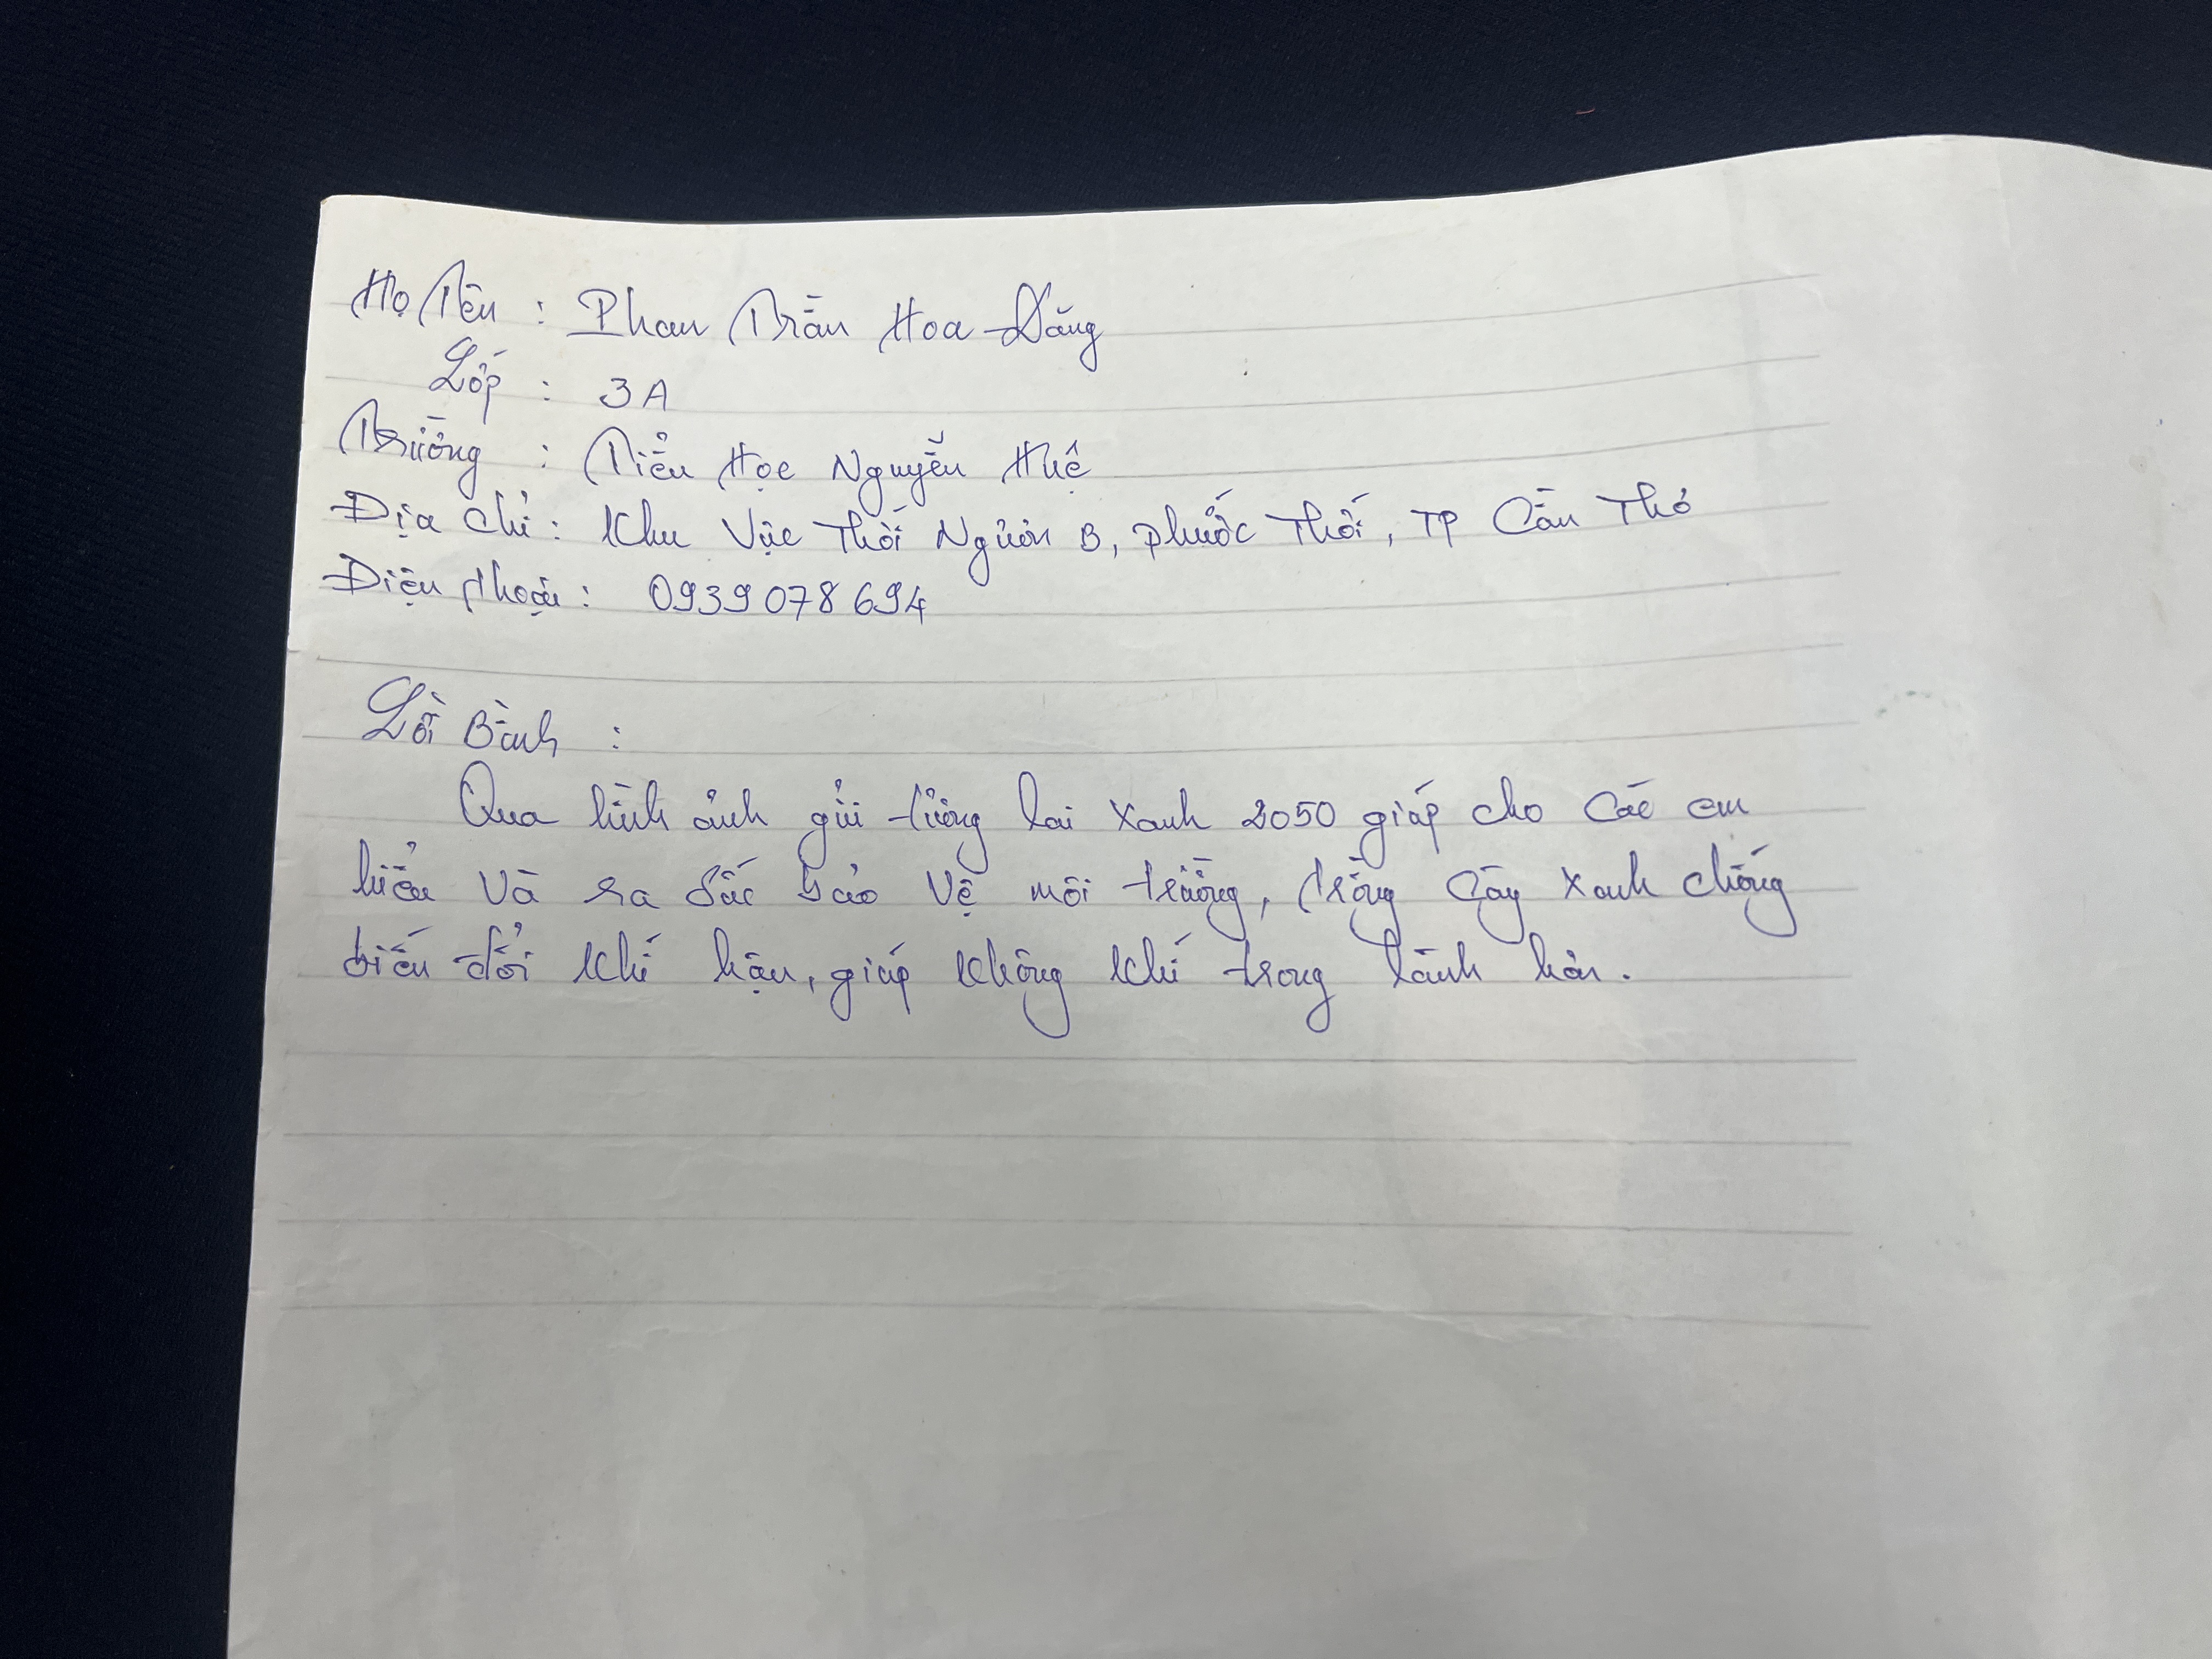 Họ Tên : Phan Trần Hoa Đăng
Lớp : 3A
Trường : Tiểu Học Nguyễn Huệ
Địa chỉ : Khu Vực Thới Ngươn B, Phước Thới, TP Cần Thơ
Điện thoại : 0939 078 694
Lời Bình :
Qua hình ảnh gửi tương lai xanh 2050 giúp cho các em
hiểu và ra sức bảo vệ môi trường, trồng cây xanh chống
biến đổi khí hậu, giúp không khí trong lành hơn.